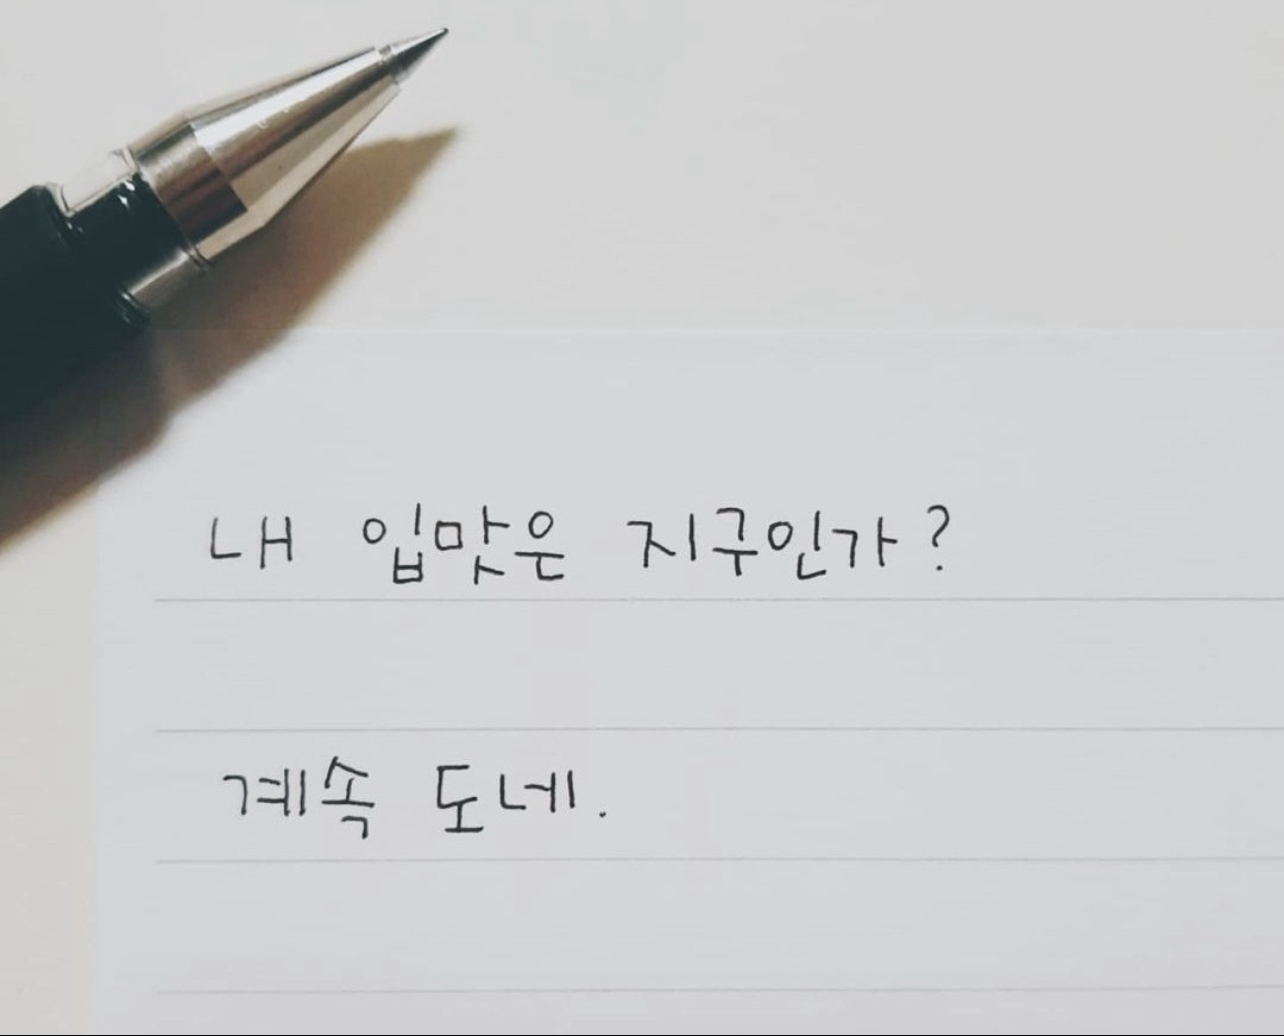 내 입맛은 지구인가?
계속 도네.